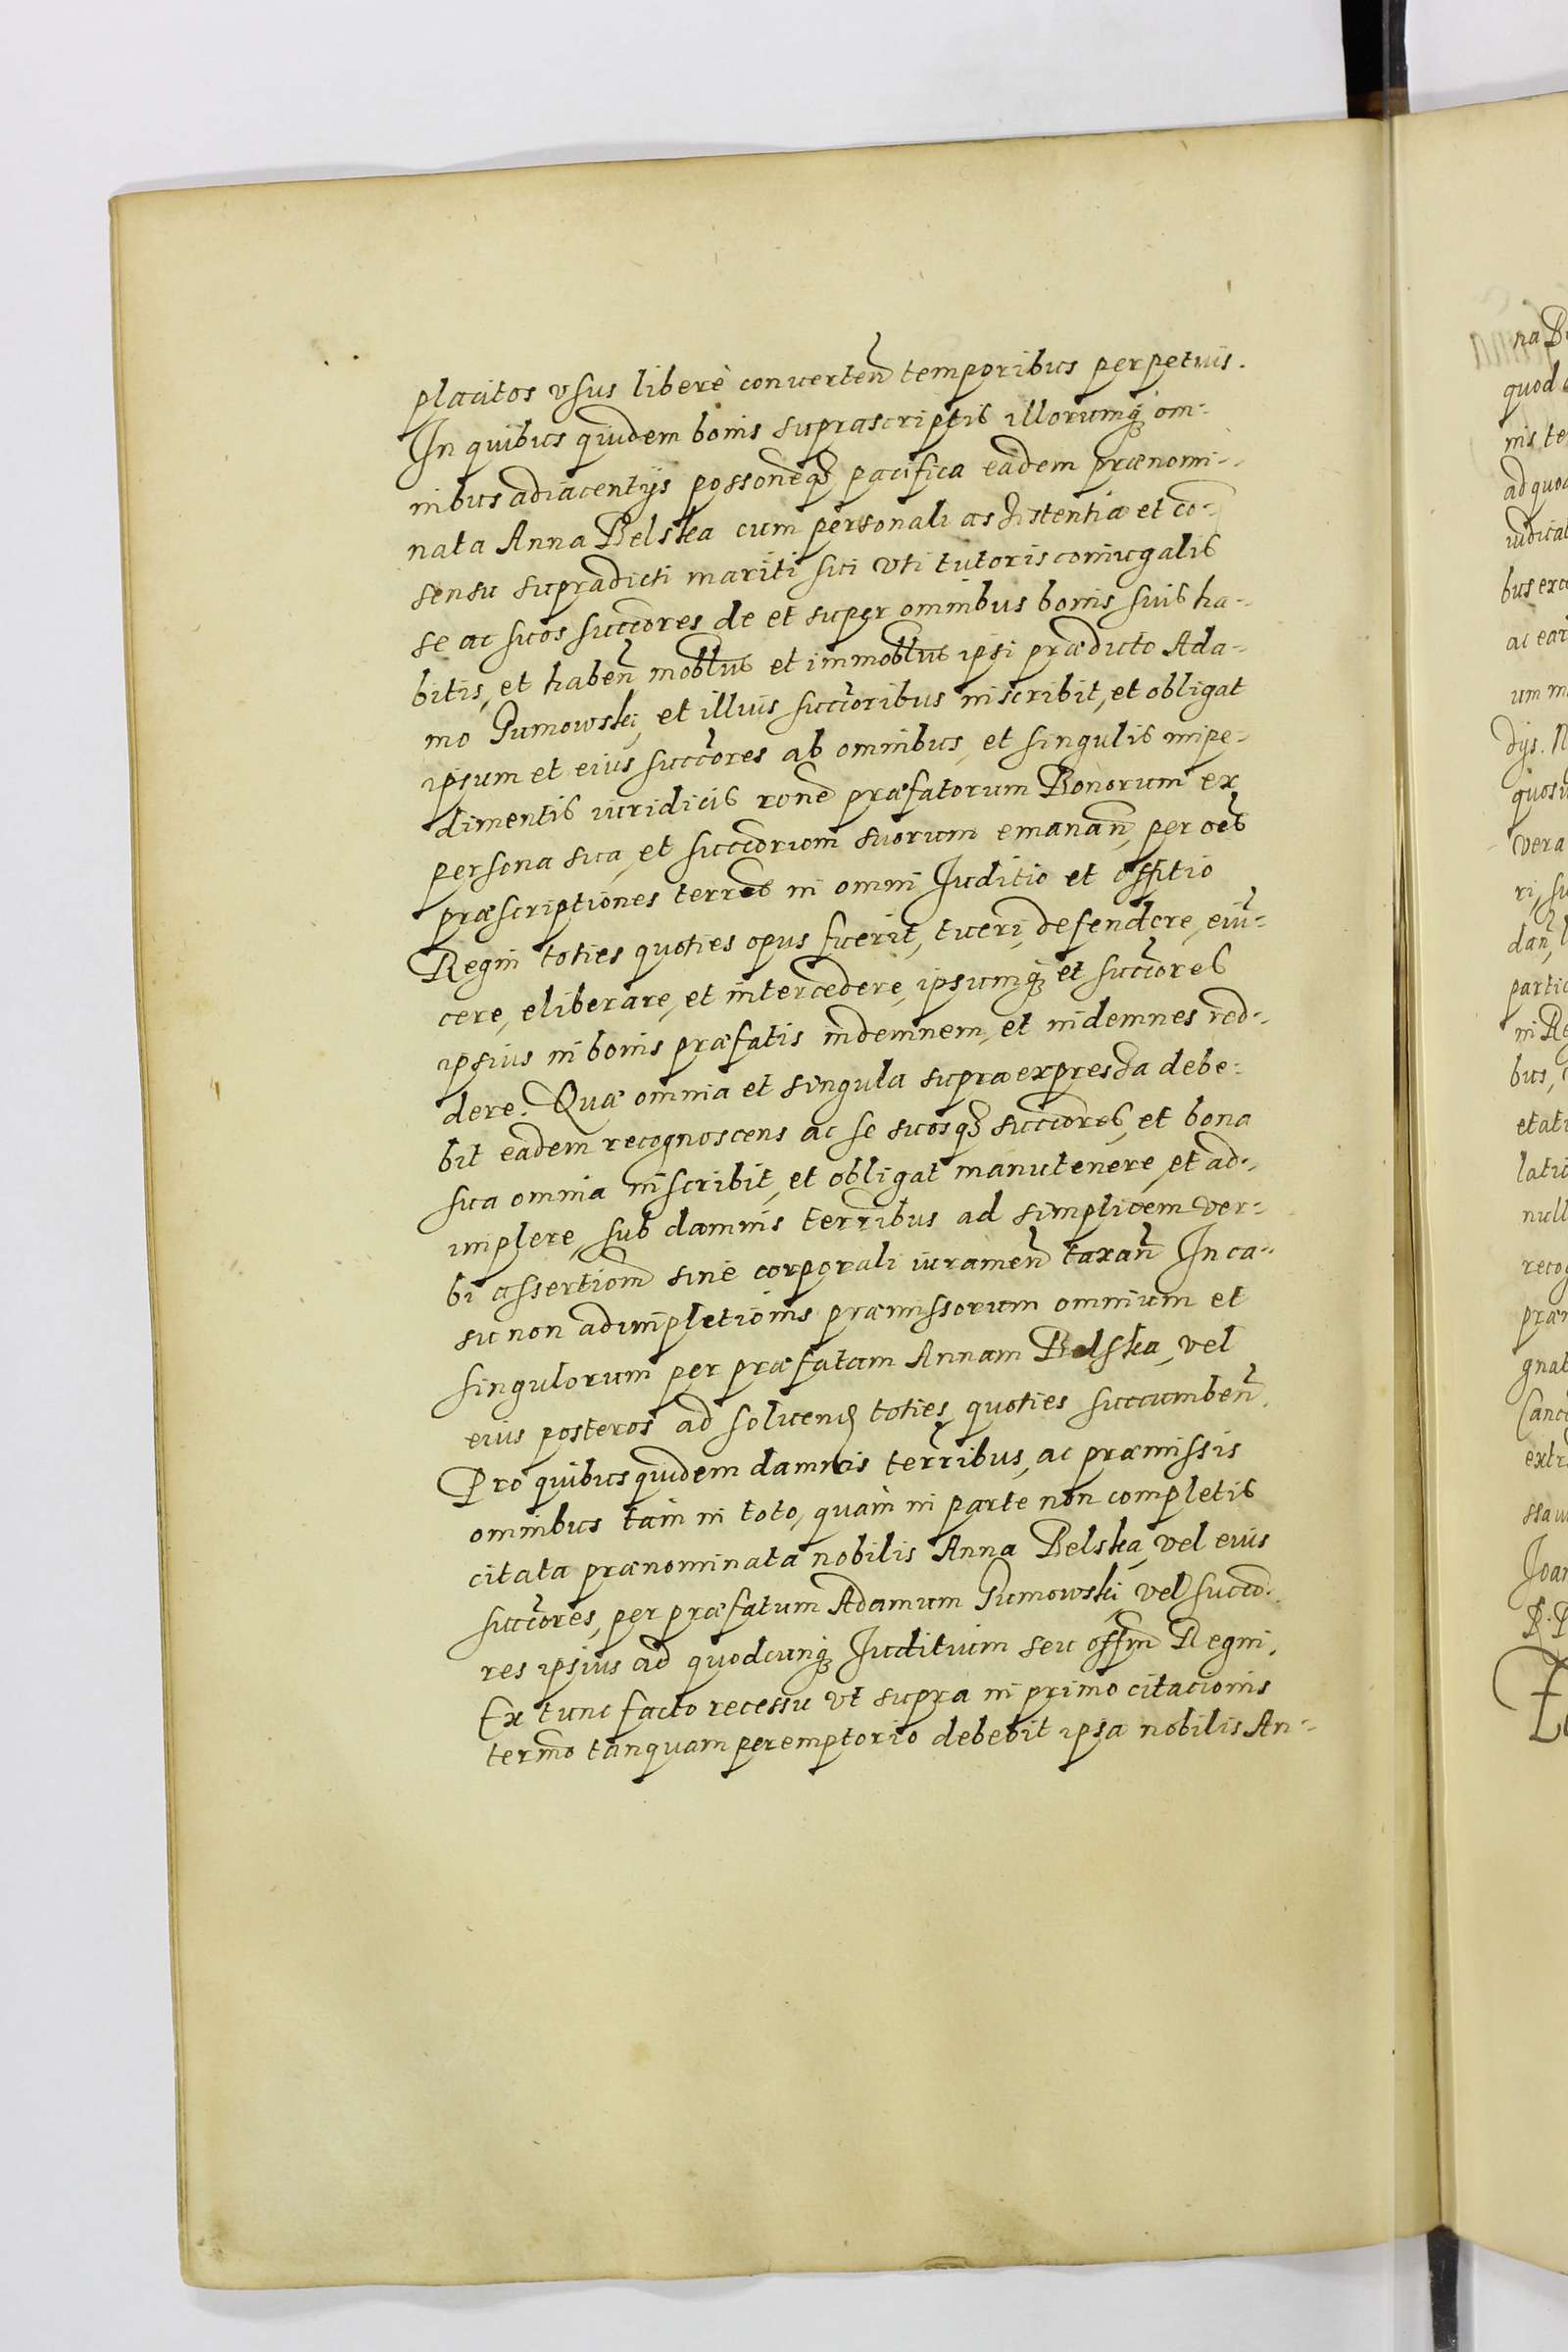 placitos vsus liberè conuerteñ temporibus perpetuis.
In quibus quidem bonis suprascriptis illorumq́ om-
nibus adiacentijs possoneq́ pacifica eadem prænomi-
nata Anna Belska cum personali assistentia et cō-
sensu supradicti mariti sui vti tutoris coniugalis
se ac suos succōres de et super omnibus bonis suis ha-
bitis, et habeñ moblbus et immoblbus ipsi prædicto Ada-
mo Gumowski, et illius succōribus inscribit, et obligat
ipsum et eius succōres ab omnibus, et singulis impe-
dimentis iuridicis rone præfatorum Bonorum ex
persona sua, et succōrum suorum emanañ, per oēs
præscriptiones terrēs in omni Iuditio et offitio
Regni toties quoties opus fuerit, tueri, defendere, euī-
cere, eliberare, et intercedere, ipsumq́ et succōres
ipsius in bonis præfatis indemnem, et indemnes red-
dere. Quæ omnia et singula supra expressa debe-
bit eadem recognoscens ac se suosq́ succōres, et bona
sua omnia inscribit, et obligat manutenere, et ad-
implere, sub damnis terribus ad simplicem ver-
bi assertiom sine corporali iurameñ taxañ In ca-
su non adimpletionis præmissorum omnium et
singulorum per præfatam Annam Belska, vel
eius posteros ad soluend toties, quoties succumbeñ.
Pro quibus quidem damnis terribus, ac præmissis
omnibus tam in toto, quam in parte non completis
citata prænominata nobilis Anna Belska, vel eius
succōres, per præfatum Adamum Gumowski, vel succō-
res ipsius ad quodcunq́ Iuditium seu offm Regni.
Ex tunc facto recessu vt supra in primo citacionis
termo tanquam peremptorio debebit ipsa nobilis An-